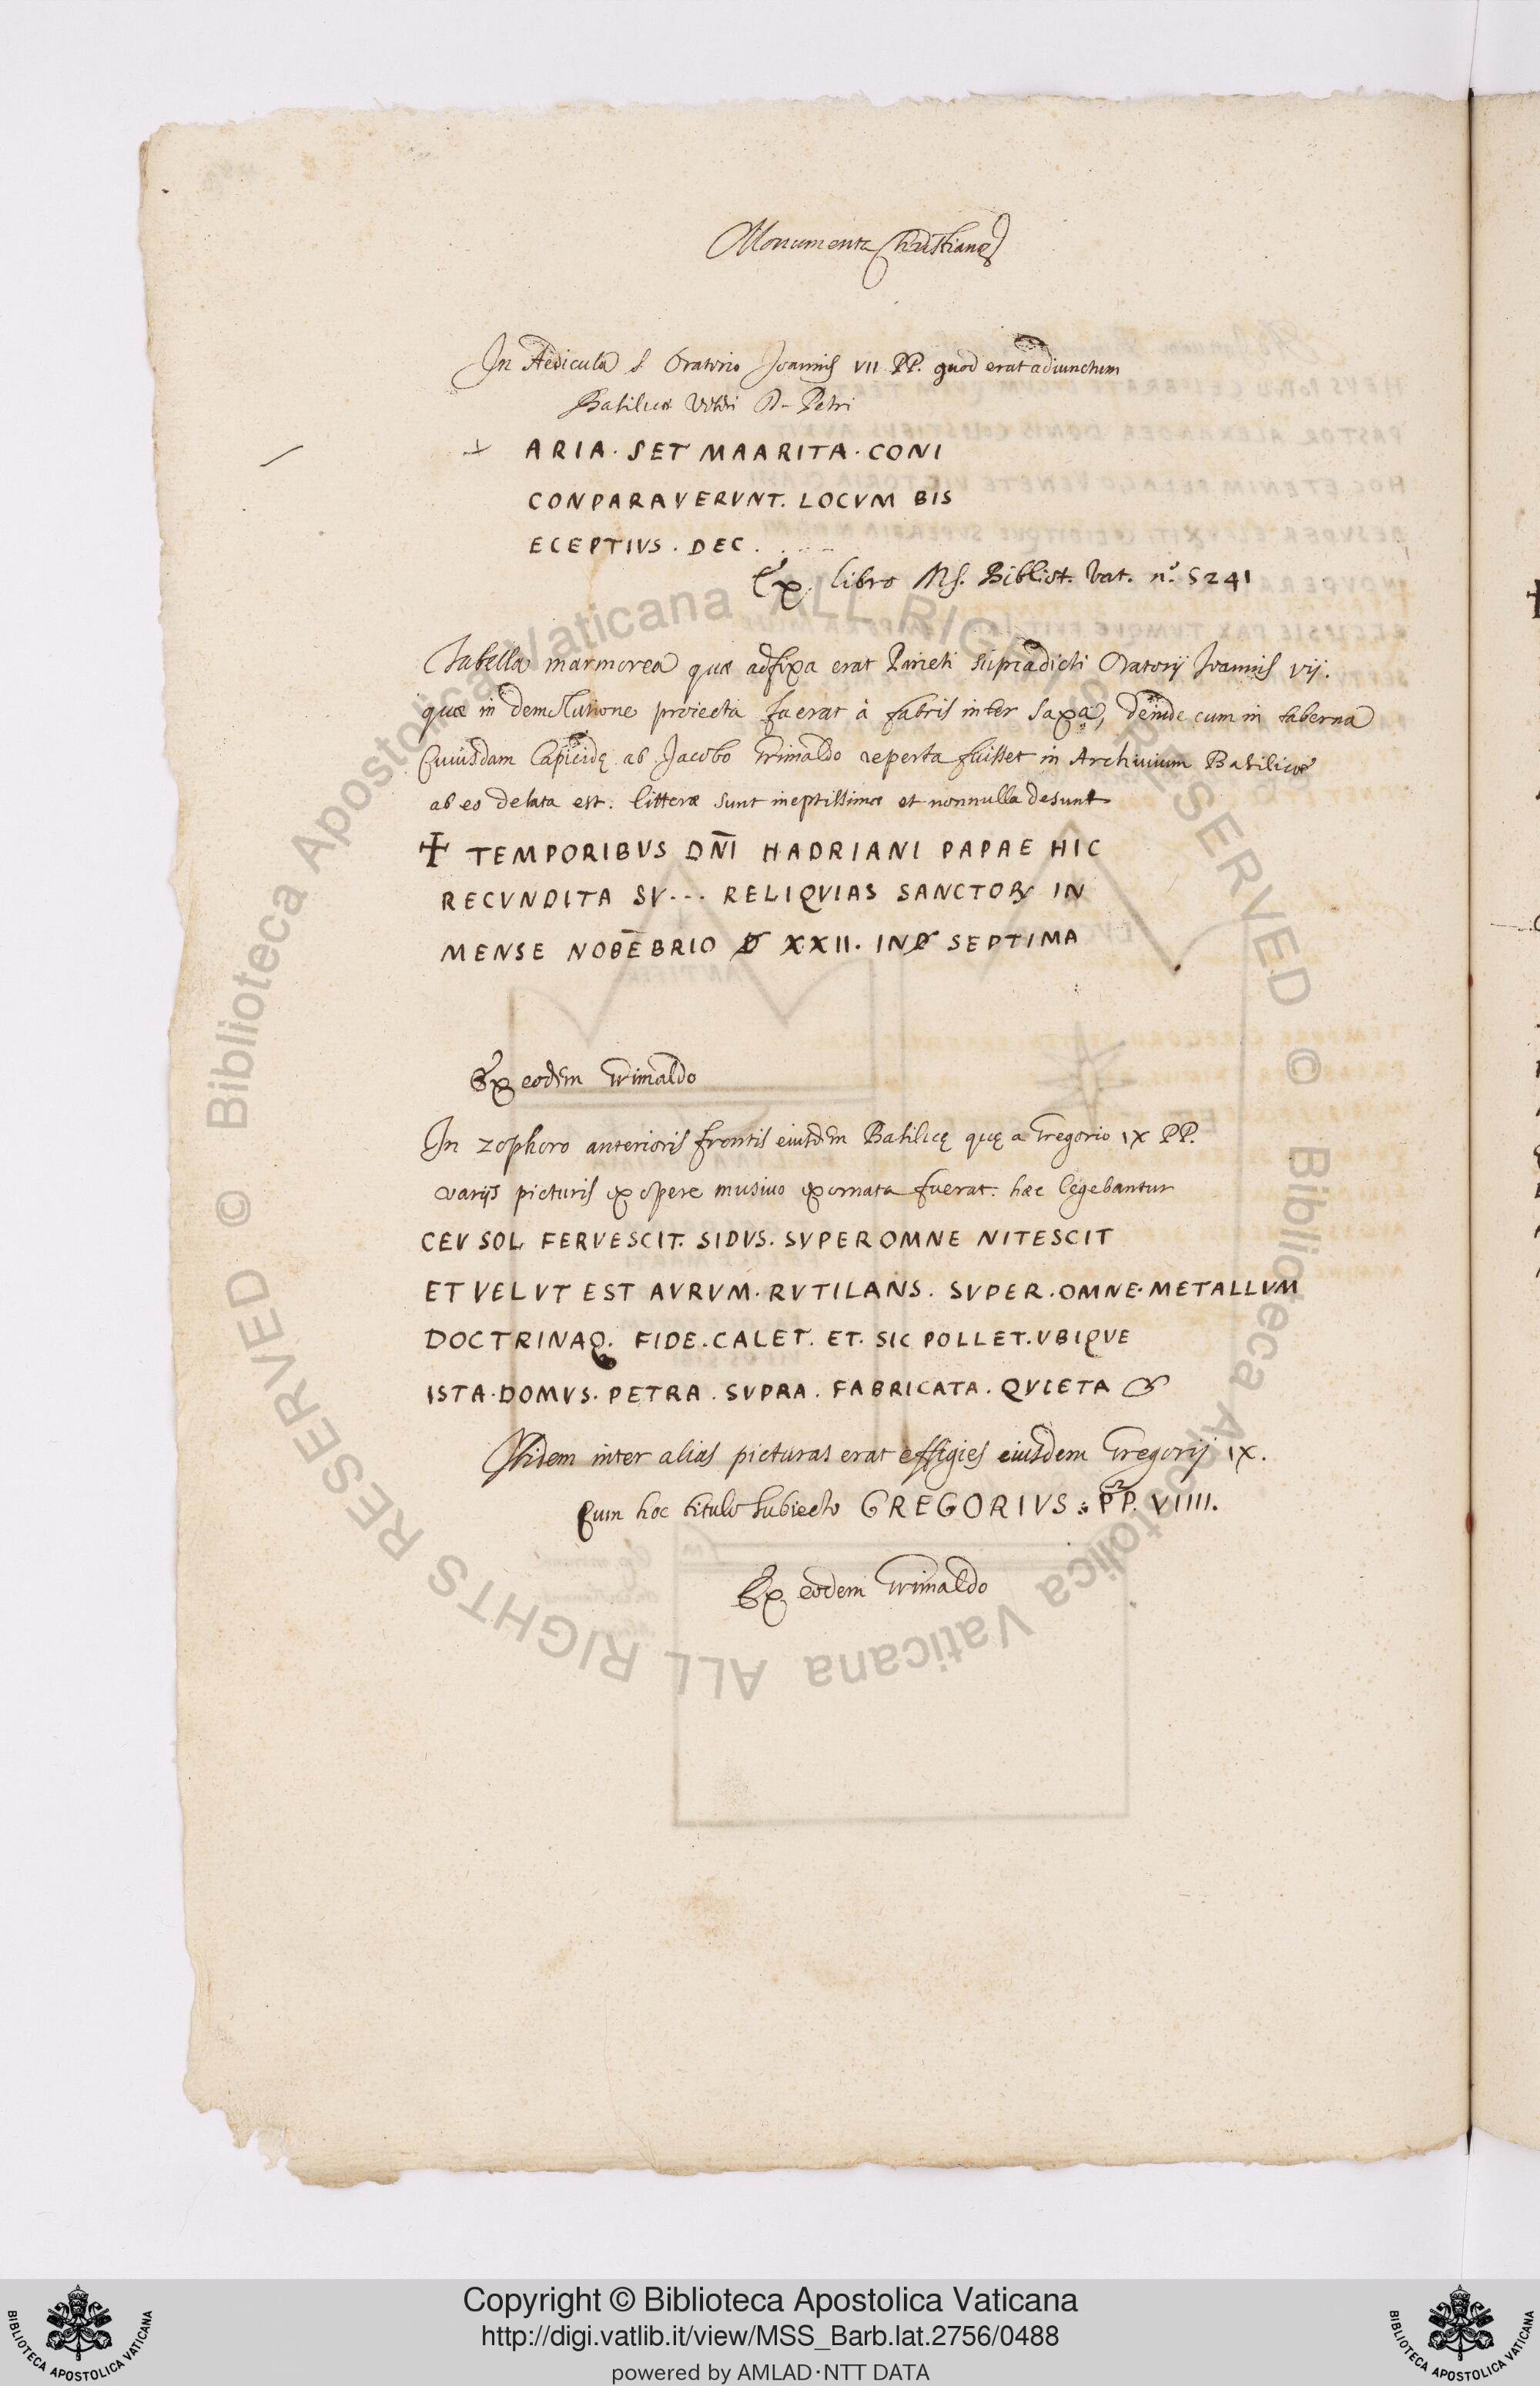 Monumenta Christiana
In Aedicula s. Oratorio Joannis VII PP. quod erat adiunctum
Basilicæ D. Petri
+ ARIA · SET MAARITA · CONI
CONPARAVERVNT. LOCVM BIS
ECEPTIVS . DEC . . . . .
Ex libro Ms. Bibliot. Vat. n.º 5241
Tabella marmorea quæ adfixa erat Parieti supradicti Oratorij Joannis vij.
quæ in demolitione proiecta fuerat à fabris inter saxa, deinde cum in taberna
cuiusdam lapicidę ab Jacobo Grimaldo reperta fuisset in Archivium Basilicæ
ab eo delata est. litteræ sunt ineptissimæ et nonnulla desunt
✝ TEMPORIBVS DN̄I HADRIANI PAPAE HIC
RECVNDITA SV... RELIQVIAS SANCTOꝜ IN
MENSE NOBĒBRIO Đ XXII. INĐ SEPTIMA
Ex eodem Grimaldo
In zophoro anterioris frontis eiusdem Basilicę quę a Gregorio IX PP.
varijs picturis ex opere musivo exornata fuerat. hæc legebantur
CEV SOL FERVESCIT. SIDVS. SVPER OMNE NITESCIT
ET VELVT EST AVRVM. RVTILANS. SVPER. OMNE. METALLVM
DOCTRINAQ. FIDE. CALET. ET. SIC POLLET. VBIQVE
ISTA. DOMVS. PETRA. SVPRA. FABRICATA. QVIETA
Ibidem inter alias picturas erat effigies eiusdem Gregorij IX.
cum hoc titulo subiecto GREGORIVS : PP. VIIII.
Ex eodem Grimaldo
© Biblioteca Apostolica Vaticana ALL RIGHTS RESERVED © Biblioteca Apostolica Vaticana ALL RIGHTS RESERVED
Copyright © Biblioteca Apostolica Vaticana
http://digi.vatlib.it/view/MSS_Barb.lat.2756/0488
powered by AMLAD·NTT DATA
BIBLIOTECA APOSTOLICA VATICANA
BIBLIOTECA APOSTOLICA VATICANA